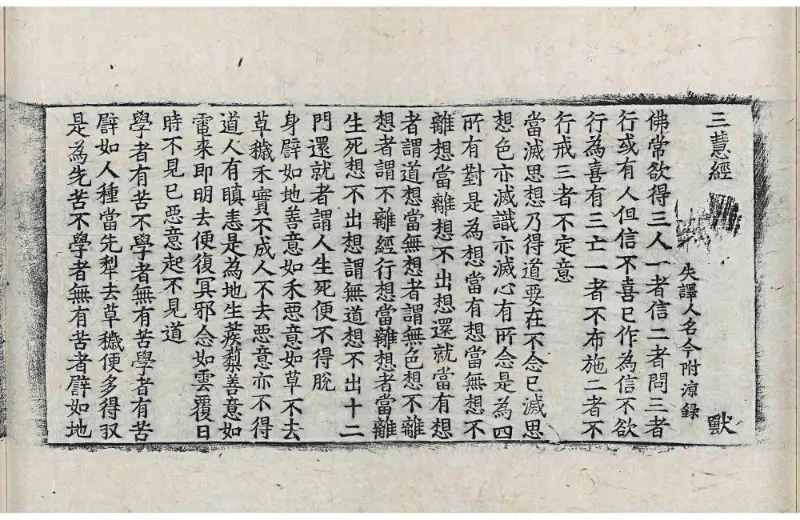 三慧經 獸
失譯人名今附涼錄
佛常欲得三人一者信二者問三者
行或有人但信不喜已作為信不欲
行為喜有三亡一者不布施二者不
行戒三者不定意
當滅思想乃得道要在不念已滅思
想色亦滅識亦滅心有所念是為四
所有對是為想當有想當無想不
離想當離想不出想還就當有想
者謂道想當無想者謂無色想不離
想者謂不離經行想當離想者當離
生死想不出想謂無道想不出十二
門還就者謂人生死便不得脫
身譬如地善意如禾惡意如草不去
草穢禾實不成人不去惡意亦不得
道人有瞋恚是為地生蒺蔾善意如
電來即明去便復冥邪念如雲覆日
時不見已惡意起不見道
學者有苦不學者無有苦學者有苦
譬如人種當先犁去草穢便多得収
是為先苦不學者無有苦者譬如地